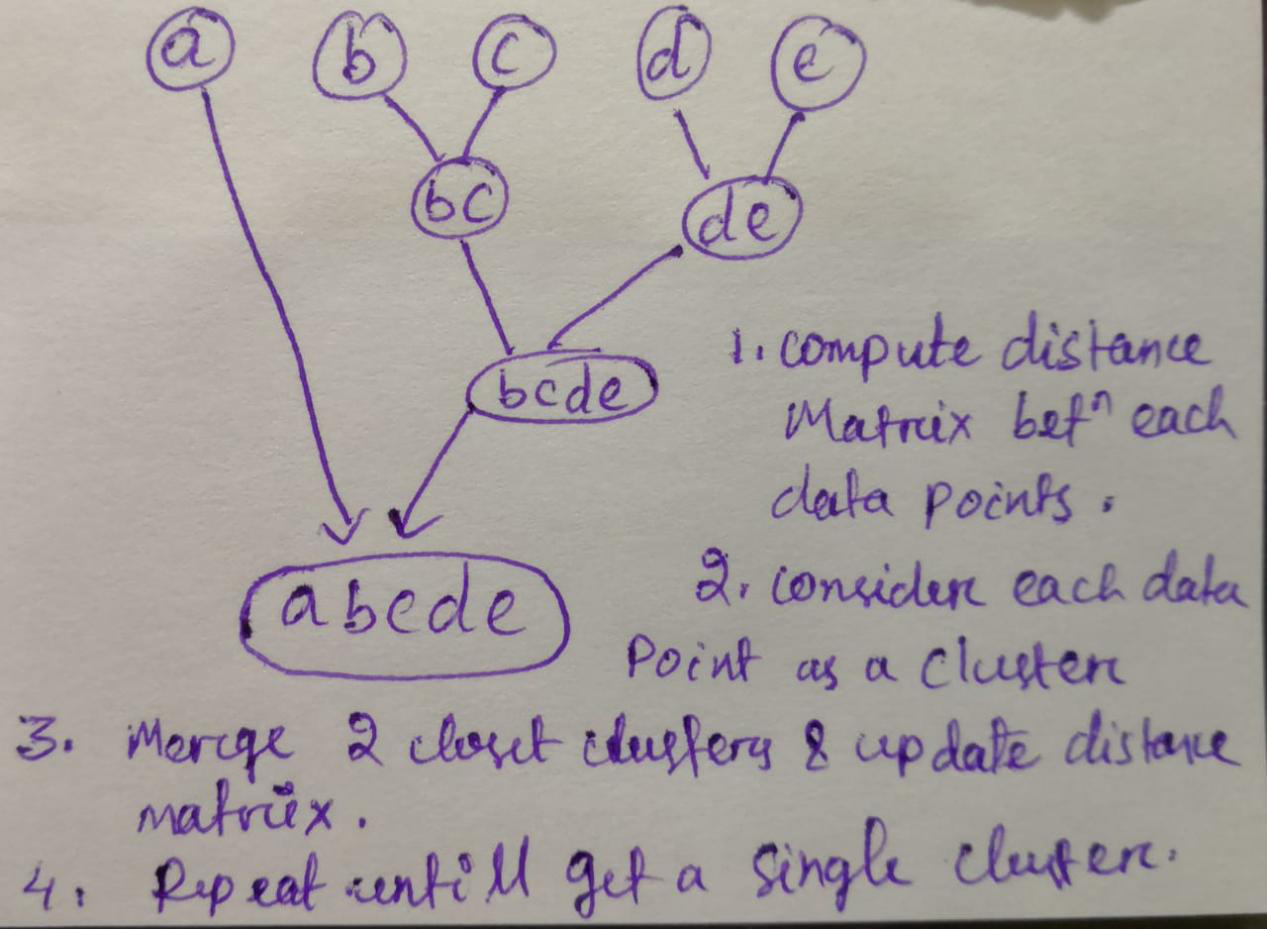 a b c d e
bc de
bcde
abcde
1. compute distance
Matrix betⁿ each
data points.
2. consider each data
Point as a cluster
3. Merge 2 closet clusters & update distance
matrix.
4. Repeat untill get a single cluster.